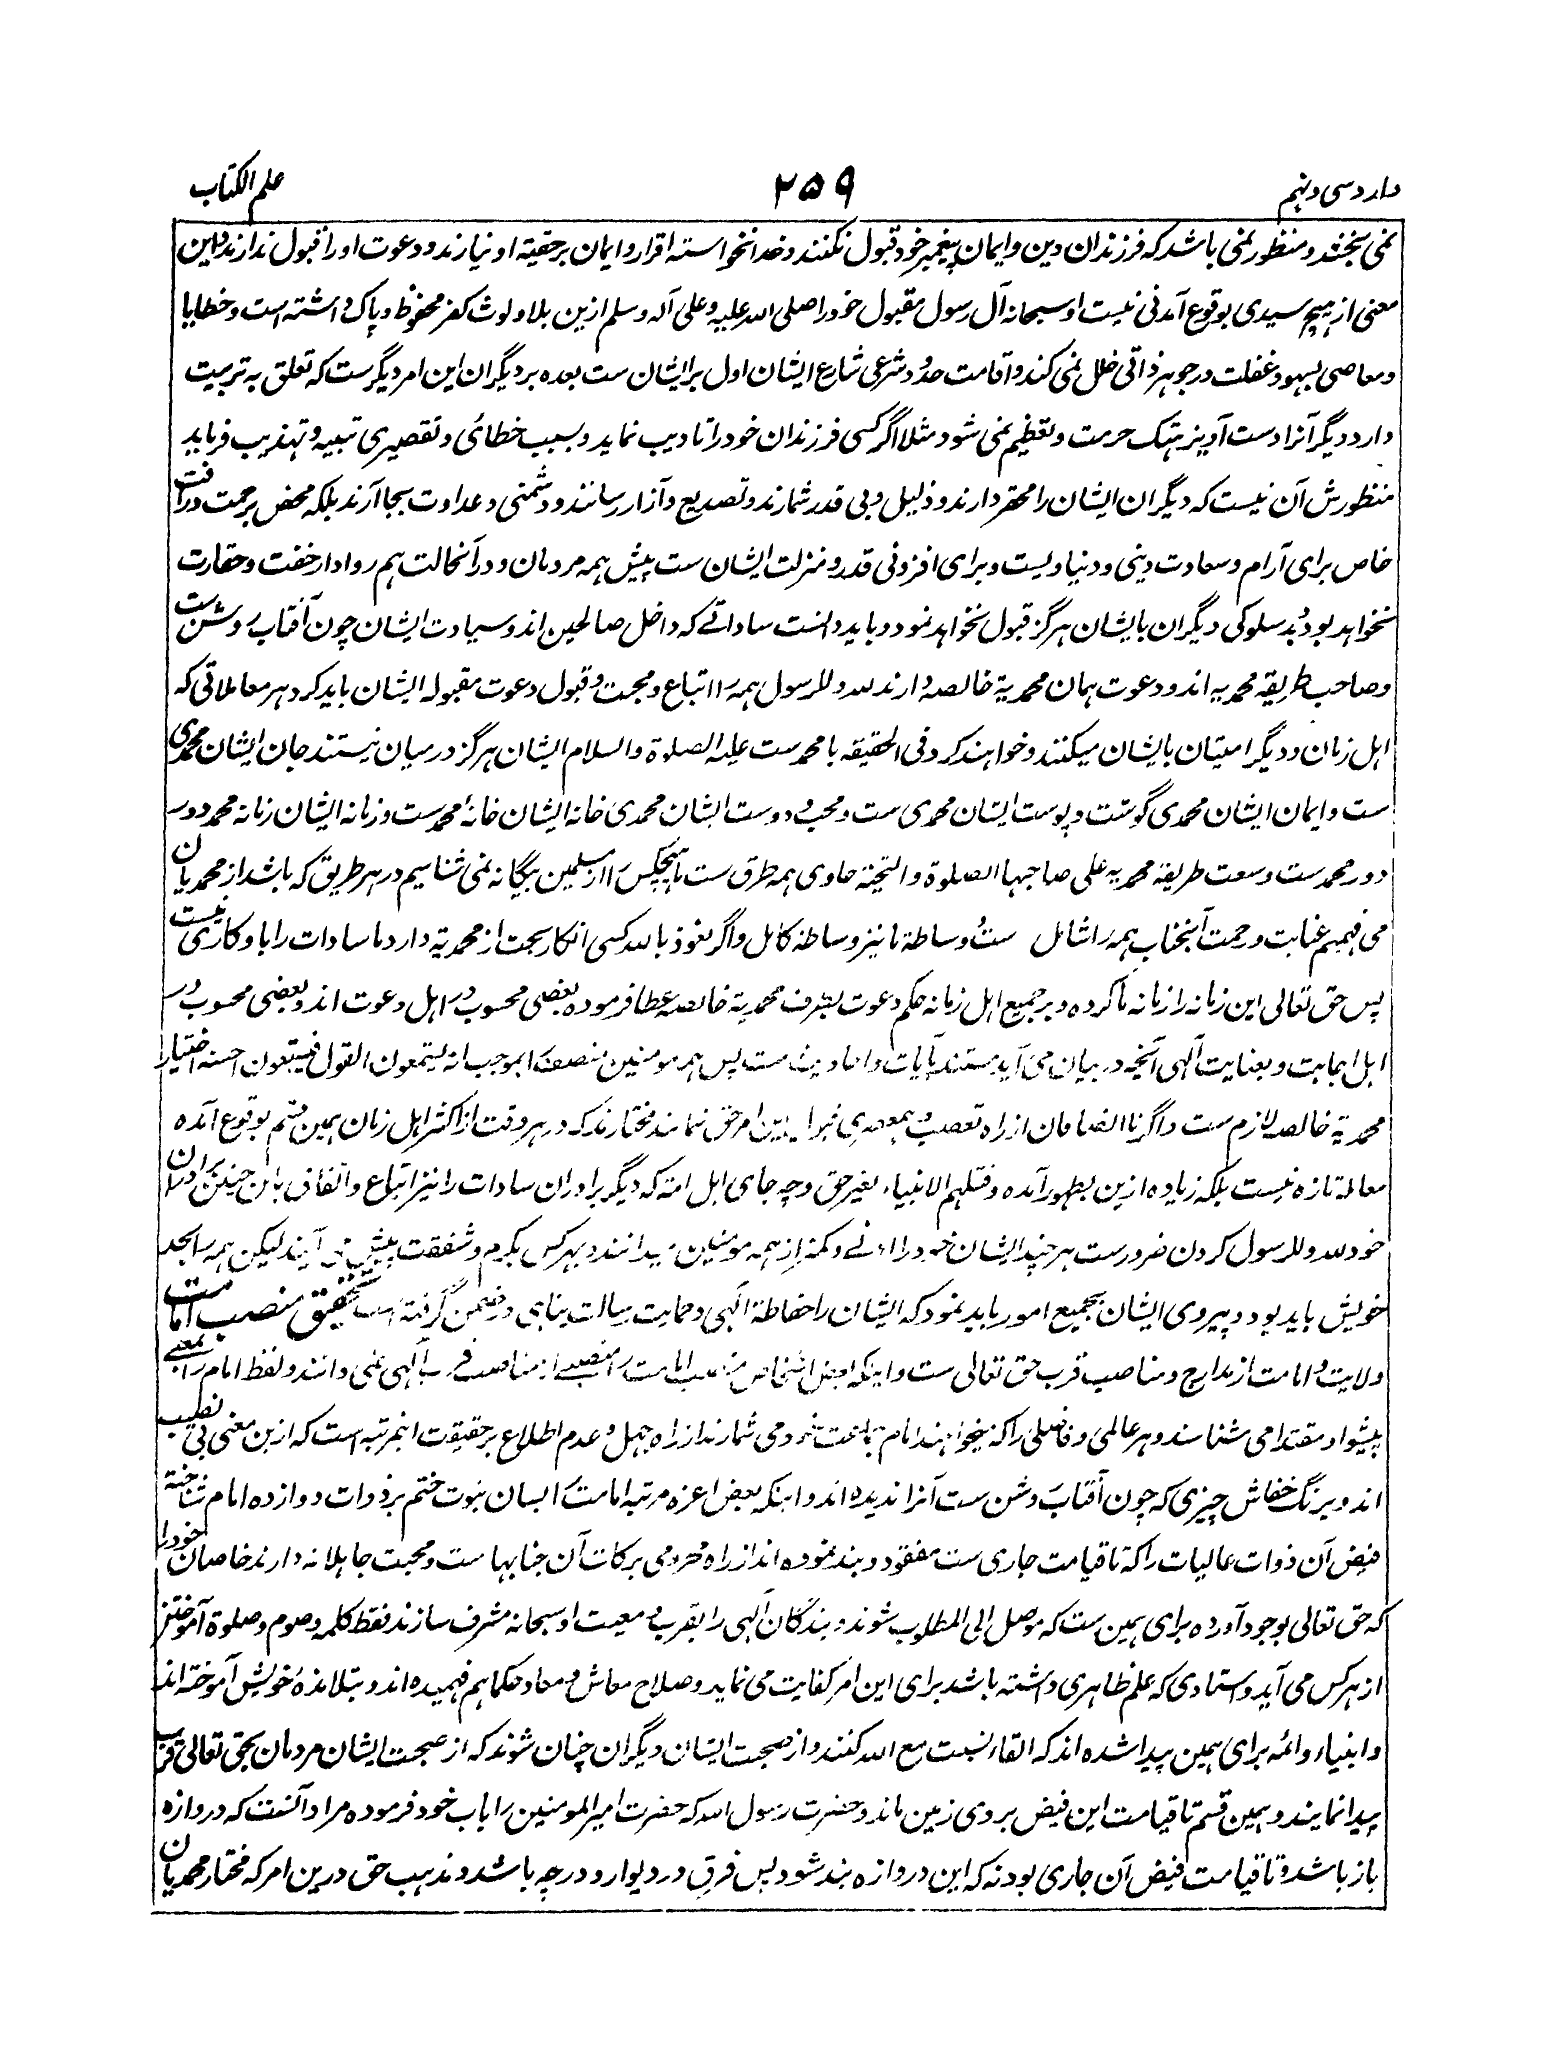 وارد سی و نهم ۲۵۹ علم الکتاب
نمی بخشد و منظور نمی باشد که فرزندان دین و ایمان پیغمبر خود قبول نکنند و خدانخواسته اقرار و ایمان بر حقیة او نیارند و دعوت او را قبول ندارند و این
معنی از هیچ سیدی بوقوع آمدنی نیست او سبحانه آل رسول مقبول خود را صلی الله علیه و علی آله و سلم ازین بلا و لوث کفر محفوظ و پاک داشته است و خطایا
و معاصی بسهو و غفلت در جوهر ذاتی خلل نمی کند و اقامت حدود شرعی شارع ایشان اول بر ایشان ست بعده بر دیگران این امر دیگرست که تعلق به تربیت
دارد دیگر آنرا دست آویز هتک حرمت و تعظیم نمی شود مثلا اگر کسی فرزندان خود را تادیب نماید و بسبب خطائی و تقصیری تنبیه و تهذیب فرماید
منظورش آن نیست که دیگران ایشان را محقر دارند و ذلیل و بی قدر شمارند و تصدیع و آزار رسانند و دشمنی و عداوت بجا آرند بلکه محض برحمت و رافت
خاص برای آرام و سعادت دینی و دنیاویست و برای افزونی قدر و منزلت ایشان ست پیش همه مردمان و در آنحالت هم روادار خفت و حقارت
نخواهد بود و بد سلوکی دیگران بایشان هرگز قبول نخواهد نمود و باید دانست ساداتے که داخل صالحین اند و سیادت ایشان چون آفتاب روشن ست
و صاحب طریقه محمدیه اند و دعوت بهمان محمدیة خالصه دارند لله و للرسول همه را اتباع و محبت و قبول دعوت مقبوله ایشان باید کرد هر معاملاتی که
اهل زمان و دیگر امتیان بایشان میکنند و خواهند کرد فی الحقیقه با محمدست علیه الصلوة والسلام ایشان هرگز درمیان نیستند جان ایشان محمدی
ست و ایمان ایشان محمدی گوشت و پوست ایشان محمدی ست و محب و دوست ایشان محمدی خانه ایشان خانهٔ محمدست و زمانه ایشان زمانه محمد دور
دور محمدست وسعت طریقه محمدیه علی صاحبها الصلوة والتحیة حاوی همه طرق ست ما هیچکس را از مسلمین بیگانه نمی شناسیم در هر طریق که باشد از محمدیان
می فهمیم عنایت و رحمت آنجناب همه را شامل ست و وساطة ما نیز وساطة کامل و اگر نعوذ بالله کسی انکار بحت از محمدیة دارد ما سادات را با او کاری نیست
پس حق تعالی این زمانه را زمانه ما کرده و بر جمیع اهل زمانه حکم دعوت بشرف محمدیة خالصه عطا فرموده بعضی محسوب در اهل دعوت اند و بعضی محسوب در
اهل اجابت و بعنایت الهی آنچه در بیان می آید مستند بآیات و احادیث ست پس همه مومنین منصف را بموجب انه یستمعون القول فیتبعون احسنه اختیار
محمدیة خالصه لازم ست و اگر نا انصافان از راه تعصب و همعصری این امر حق نمایند مختارند که در هر وقت از اکثر اهل زمان همین قسم بوقوع آمده
معامله تازه نیست بلکه زیاده ازین بظهور آمده و قتلهم الانبیاء بغیر حق و چه جای اهل امة که دیگر برادران سادات را نیز اتباع و اتفاق باین چنین برادران
خود لله و للرسول کردن ضرورست هر چند ایشان خود را ادنے و کمتر از همه مومنین میدانند و بهر کس بکرم و شفقت پیش می آیند لیکن همه را بجد
خویش باید بود و پیروی ایشان بجمیع امور باید نمود که ایشان را حفاظة الهی و حمایت رسالت پناهی در ضمن گرفته است تحقیق منصب امامت
ولایت و امامت از مدارج و مناصب قرب حق تعالی ست و اینکه بعض اشخاص منصب امامت را منصبے از مناصب قرب الهی نمی دانند و لفظ امام را بمعنے
پیشوا و مقتدا می شناسند و هر عالمی و فاضلی را که میخواهند امام جماعت خود می شمارند از راه جهل و عدم اطلاع بر حقیقت اینمرتبه است که ازین معنی بی نصیب
اند و برنگ خفاش چیزی که چون آفتاب روشن ست آنرا ندیده اند و اینکه بعض اعزه مرتبه امامت را بسان نبوت ختم بر ذوات دوازده امام شناخته
فیض آن ذوات عالیات را که تا قیامت جاری ست مفقود و بند نموده اند از راه محرومی برکات آن جنابها ست و محبت جاهلانه دارند خاصان خود را
که حق تعالی بوجود آورده برای همین ست که موصل الی المطلوب شوند و بندگان الهی را بقرب و معیت او سبحانه مشرف سازند فقط کلمه و صوم و صلوة آموختن
از هر کس می آید و استادی که علم ظاهری داشته باشد برای این امر کفایت می نماید و صلاح معاش و معاد حکما هم فهمیده اند و بتلامذهٔ خویش آموخته اند
و انبیاء و ائمه برای همین پیدا شده اند که القاء نسبت مع الله کنند و از صحبت ایشان دیگران چنان شوند که از صحبت ایشان مردمان بحق تعالی قرب
پیدا نمایند و بهمین قسم تا قیامت این فیض بروی زمین ماند و حضرت رسول الله که حضرت امیر المومنین را باب خود فرموده مراد آنست که دروازه
باز باشد و تا قیامت فیض آن جاری بود نه که این دروازه بند شود پس فرق در دیوار و در چه باشد و مذهب حق درین امر که مختار محمدیان